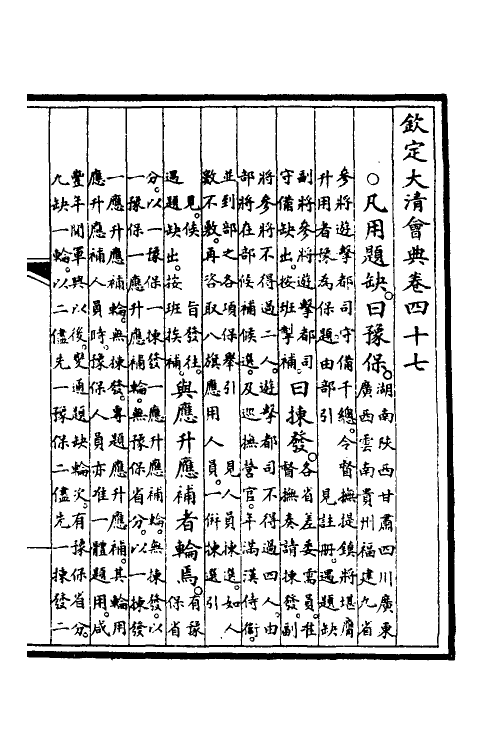 欽定大清會典卷四十七
○凡用題缺。曰豫保。湖南陝西甘肅四川廣東
廣西雲南貴州福建九省
參將遊擊都司守備千總。令督撫提鎮將堪膺
升用者豫為保題由部引 見註冊。遇題缺
副將參將遊擊都司
守備缺出。按班掣補。曰揀發。各省差委需員。准
督撫奏請揀發。副
將參將不得過二人。遊擊都司不得過四人。由
部將在部候補候選。及巡撫營官。年滿漢侍衛。
並到部之各項保舉引 見人員揀選。如人
數不敷。再咨取八旗應用人員。一併揀選引
見。候 旨發往。
遇題缺出。按班挨補。與應升應補者輪焉。有豫
保省
分。以一豫保一揀發一應升應補輪。無揀發。以
一豫保一應升應補輪。無豫保省分。以一揀發
一應升應補輪。無揀發。專題應升應補。其輪用
應升應補人員時。豫保人員亦准一體題用。咸
豐年間軍興以後。變通題缺輪次。有豫保省分。
九缺一輪。以二儘先一豫保二儘先一揀發二